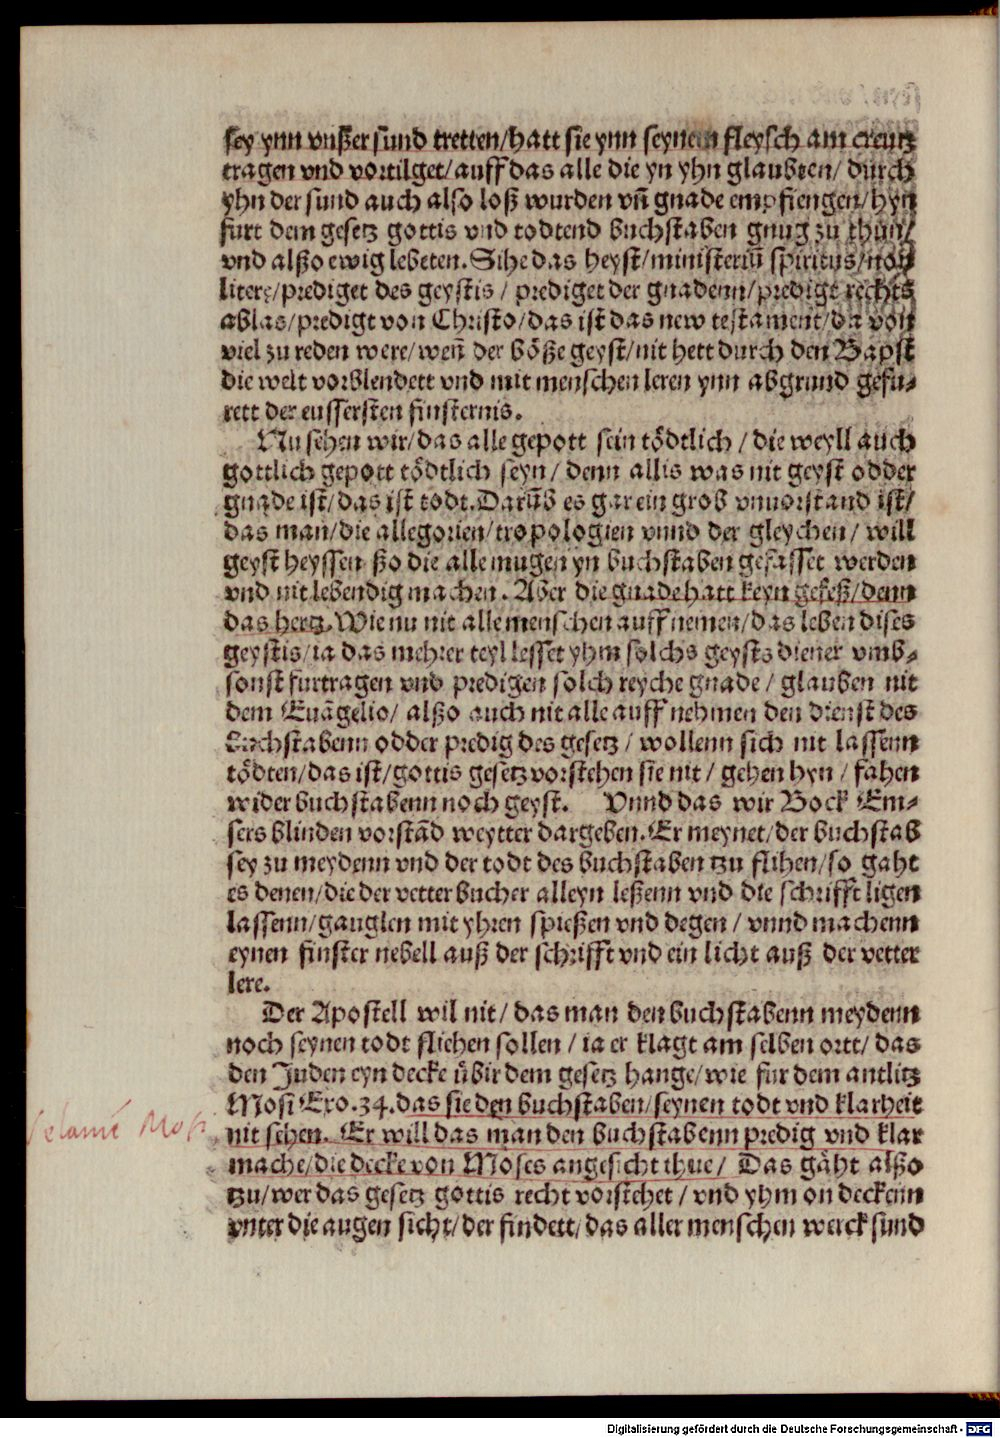 sey ynn vnßer sund tretten/hatt sie ynn seynem fleysch am creutz
tragen vnd vortilget/auff das alle die yn yhn glaubten/ durch
yhn der sund auch also loß wurden vñ gnade empfiengen/hyn
furt dem gesetz gottis vnd todtend buchstaben gnug zu thun/
vnd alßo ewig lebeten. Sihe das heyst/ministeriũ spiritus/non
litere/prediget des geystis / prediget der gnadenn/predigt rechts
ablas/predigt von Christo/das ist das new testament/da von
viel zu reden were/weñ der bößze geyst/nit hett durch den Bapst
die welt vorblendett vnd mit menschen leren ynn abgrund gefu-
rett der eussersten finsternis.
Nu sehen wir/das alle gepott sein tödtlich / die weyll auch
gottlich gepott tödtlich seyn/ denn allis was nit geyst odder
gnade ist/das ist todt. Darũb es gar ein grob vnuorstand ist/
das man/die allegorien/tropologien vnnd der gleychen/ will
geyst heyssen ßo die alle mugen yn buchstaben gefasset werden
vnd nit lebendig machen. Aber die gnade hatt keyn gefeß/denn
das hertz. Wie nu nit alle menschen auff nemen/das leben dises
geystis/ia das mehrer teyl lesset yhm solchs geysts diener vmb-
sonst furtragen vnd predigen solch reyche gnade/ glauben nit
dem Euãgelio/ alßo auch nit alle auff nehmen den dienst des
buchstabenn odder predig des gesetz / wollenn sich nit lassenn
tödten/das ist/gottis gesetz vorstehen sie nit/ gehen hyn / fahen
wider buchstabenn noch geyst. Vnnd das wir Bock Em-
sers blinden vorstãd weytter dargeben. Er meynet/der buchstab
sey zu meydenn vnd der todt des buchstaben tzu flihen/so gaht
es denen/die der vetter bucher alleyn leßenn vnd die schrifft ligen
lassenn/gauglen mit yhren spießen vnd degen/ vnnd machenn
eynen finster nebell auß der schrifft vnd ein licht auß der vetter
lere.
Der Apostell wil nit/ das man den buchstabenn meydenn
noch seynen todt fliehen sollen / ia er klagt am selben ortt/ das
den Juden eyn decke übir dem gesetz hange/wie fur dem antlitz
Mosi Exo.34.das sie den buchstaben/seynen todt vnd klarheit
Velamẽ Mosi
nit sehen. Er will das man den buchstabenn predig vnd klar
mache/die decke von Moses angesicht thue/ Das gäht alßo
tzu/wer das gesetz gottis recht vorstehet/ vnd yhm on deckenn
vnter die augen sicht/der findett/das aller menschen werck sund
Digitalisierung gefördert durch die Deutsche Forschungsgemeinschaft - DFG